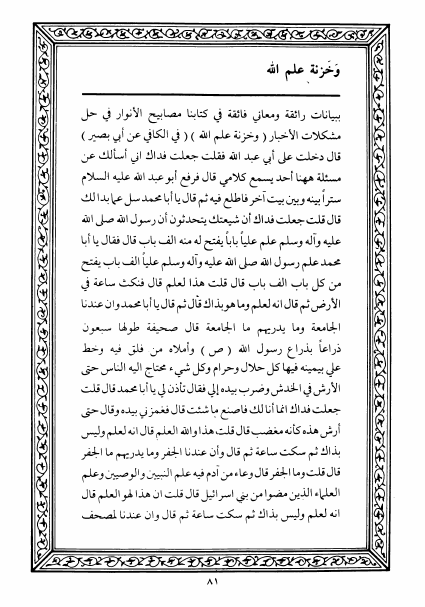 وَخَزنة علم الله
ببيانات رائقة ومعاني فائقة في كتابنا مصابيح الأنوار في حل
مشكلات الأخبار ( وخزنة علم الله ) ( في الكافي عن أبي بصير )
قال دخلت على أبي عبد الله فقلت جعلت فداك اني أسألك عن
مسئلة ههنا أحد يسمع كلامي قال فرفع أبو عبد الله عليه السلام
ستراً بينه وبين بيت آخر فاطلع فيه ثم قال يا أبا محمد سل عما بدا لك
قال قلت جعلت فداك أن شيعتك يتحدثون أن رسول الله صلى الله
عليه وآله وسلم علم علياً باباً يفتح له منه الف باب قال فقال يا أبا
محمد علم رسول الله صلى الله عليه وآله وسلم علياً الف باب يفتح
من كل باب الف باب قال قلت هذا لعلم قال فنكث ساعة في
الأرض ثم قال انه لعلم وما هو بذاك قال ثم قال يا أبا محمد وان عندنا
الجامعة وما يدريهم ما الجامعة قال صحيفة طولها سبعون
ذراعاً بذراع رسول الله ( ص ) وأملاه من فلق فيه وخط
علي بيمينه فيها كل حلال وحرام وكل شيء محتاج اليه الناس حتى
الأرش في الخدش وضرب بيده إلي فقال تأذن لي يا أبا محمد قال قلت
جعلت فداك انما أنا لك فاصنع ما شئت قال فغمزني بيده وقال حتى
أرش هذه كأنه مغضب قال قلت هذا والله العلم قال انه لعلم وليس
بذاك ثم سكت ساعة ثم قال وأن عندنا الجفر وما يدريهم ما الجفر
قال قلت وما الجفر قال وعاء من آدم فيه علم النبيين والوصيين وعلم
العلماء الذين مضوا من بني اسرائيل قال قلت ان هذا لهو العلم قال
انه لعلم وليس بذاك ثم سكت ساعة ثم قال وان عندنا لمصحف
٨١